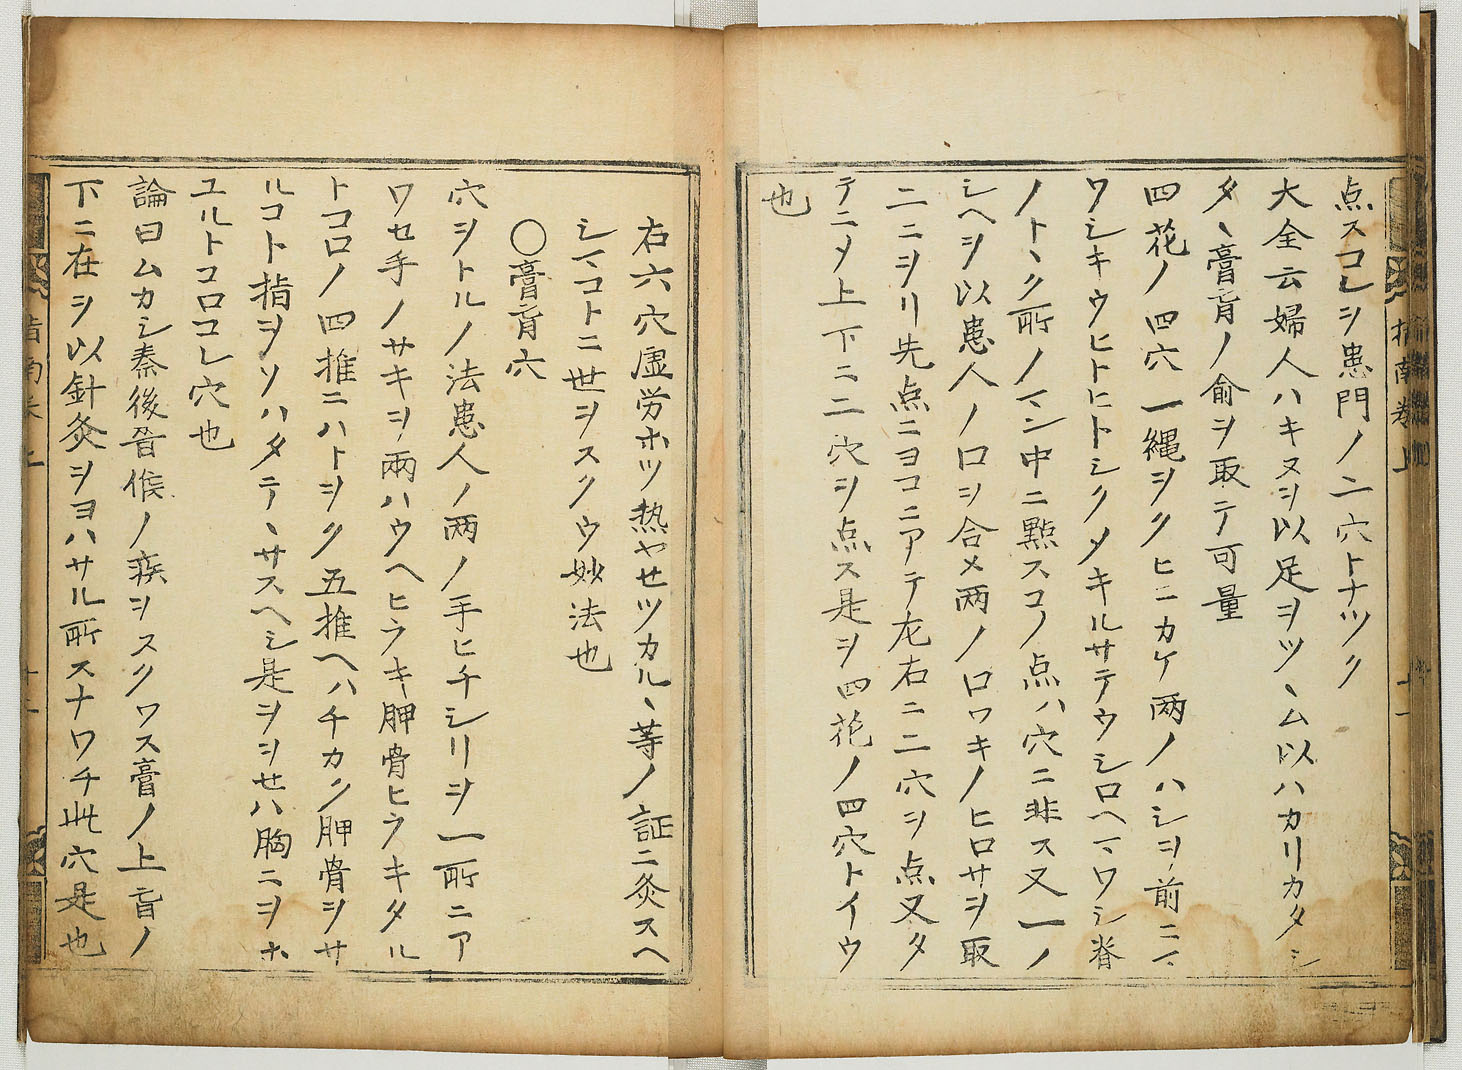 点スコレヲ患門ノ二穴トナツク
大全云婦人ハキヌヲ以足ヲツヽム以ハカリカタシ
タヽ膏肓ノ俞ヲ取テ可量
四花ノ四穴一縄ヲクヒニカケ両ノハシヲ前ニヽ
ワシキウヒトヒトシクメキルサテウシロヘマワシ脊
ノトヽク所ノマン中ニ點スコノ点ハ穴ニ非ス又一ノ
シヘヲ以患人ノ口ヲ合メ両ノ口ワキノヒロサヲ取
二ニヲリ先点ニヨコニアテ左右ニ二穴ヲ点又タ
テニメ上下ニ二穴ヲ点ス是ヲ四花ノ四穴トイウ
也
右六穴虚労ホツ熱ヤセツカルヽ等ノ証ニ灸スヘ
シマコトニ世ヲスクウ妙法也
〇膏肓穴
穴ヲトルノ法患人ノ两ノ手ヒチシリヲ一所ニア
ワセ手ノサキヲ兩ハウヘヒラキ胛骨ヒラキタル
トコロノ四推ニハトヲク五推ヘハチカク胛骨ヲサ
ルコト指ヲソハタテヽサスヘシ是ヲヲセハ胸ニヲホ
ユルトコロコレ穴也
論曰ムカシ秦後晉候ノ疾ヲスクワス膏ノ上盲ノ
下ニ在ヲ以針灸ヲヨハサル所スナワチ此穴是也
指南卷上
十一